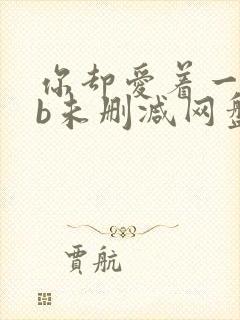 你却爱着一
b未删减网盘
贾航